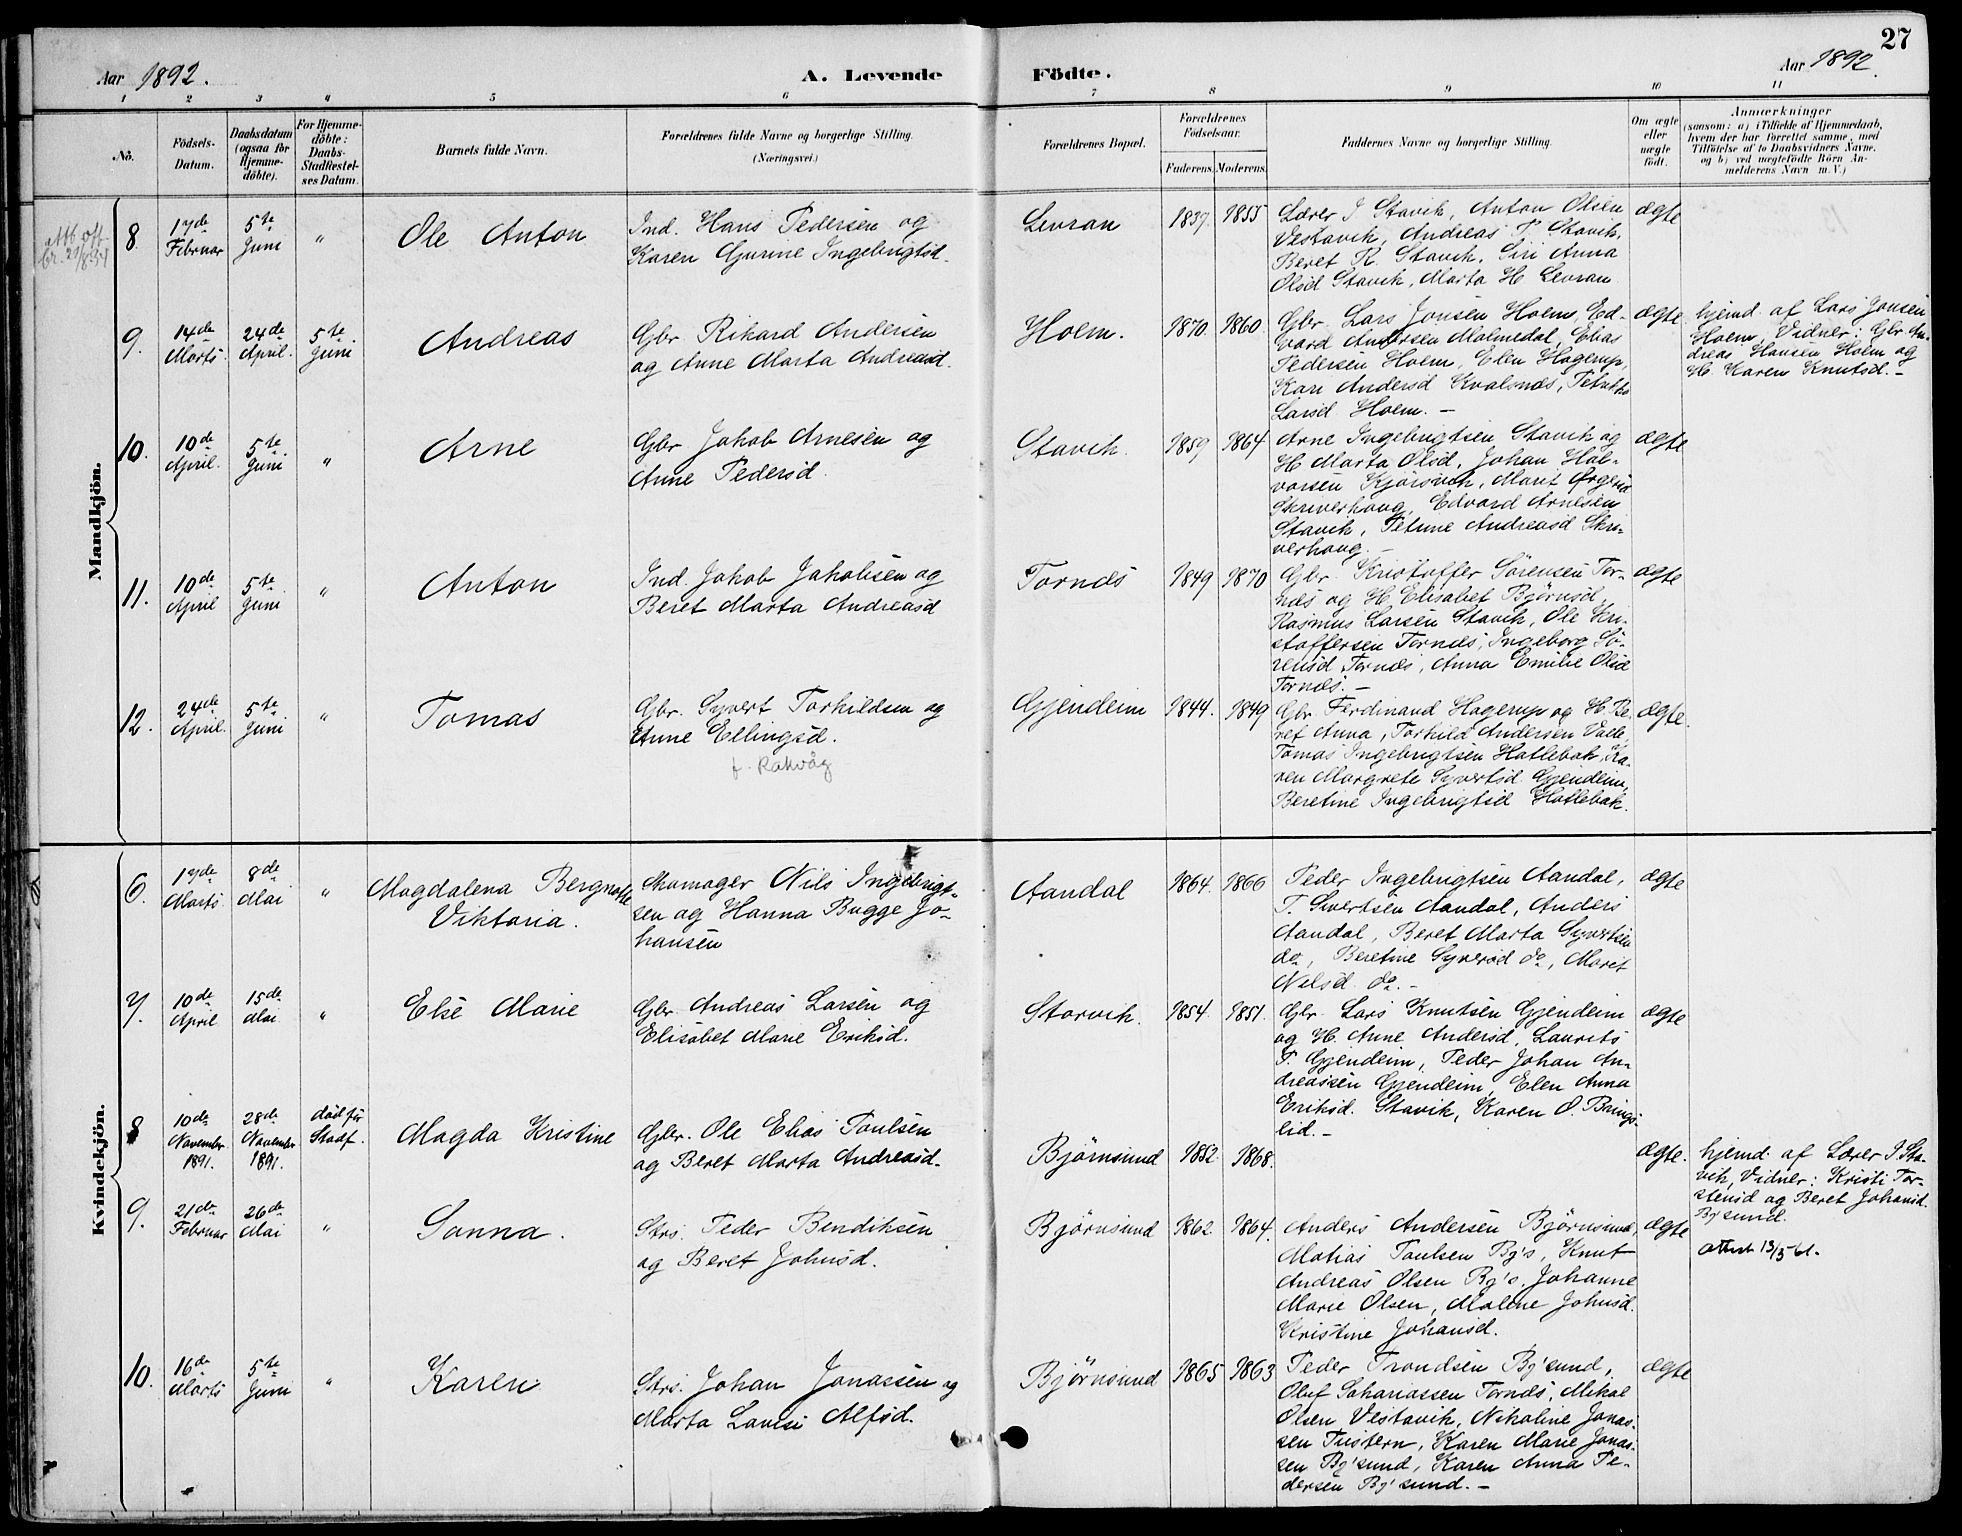 27
Aar 1892.
A. Levende Födte.
Aar 1892.
1 2 3 4 5 6 7 8 9 10 11
No.
Födsels-
Datum.
Daabsdatum
(ogsaa for
Hjemme-
döbte).
For Hjemme-
döbte:
Daabs-
Stadfæstel-
ses Datum.
Barnets fulde Navn.
Forældrenes fulde Navne og borgerlige Stilling.
(Næringsvei.)
Forældrenes Bopæl.
Forældrenes
Födselsaar.
Faderens. Moderens.
Faddernes Navne og borgerlige Stilling.
Om ægte
eller
uægte
födt.
Anmærkninger
(saasom: a) i Tilfælde af Hjemmedaab,
hvem der har forrettet samme, med
Tilföielse af to Daabsvidners Navne,
og b) ved uægtefödte Börn An-
melderens Navn m. V.)
Mandkjön.
8.
17de
Februar
5te
Juni
"
Ole Anton
Ind. Hans Pedersen og
Karen Gurine Ingebrigtsd.
Levran
1837. 1855
Lærer I Stavik, Anton Olsen
Vestavik, Andreas P. Stavik,
Beret R. Stavik, Siri Anna
Olsd Stavik, Marta H Levran
ægte
9.
14de
Marts.
24de
April.
5te
Juni
Andreas
Gbr. Rikard Andersen
og Anne Marta Andreasd.
Holm.
1870. 1860.
Gbr. Lars Jonsen Holm, Ed-
vard Andersen Malmedal, Elias
Pedersen Holm, Elen Hagerup,
Kari Andersd Kvalsnæs,
Larsd. Holm. –
ægte
hjemd. af Lars Jonsen
Holm, Vidner: Gbr. An-
dreas Hansen Holm og
H. Karen Knutsd. –
10.
10de
April.
5te
Juni
"
Arne
Gbr. Jakob Arnesen og
Anne Pedersd.
Stavik.
1859 1864
Arne Ingebrigtsen Stavik og
H. Marta Olsd, Johan Hal-
vorsen Kjörsvik, Marit
Skriverhaug, Edvard Arnesen
Stavik, Petrine Andreasd Skri-
verhaug. –
ægte
11.
10de
April
5te
Juni
"
Anton
Ind. Jakob Jakobsen og
Beret Marta Andreasd
Tornæs
1849 1870
Gbr. Kristoffer Sörensen Tor-
næs og H. Elisabet Björnsd,
Rasmus Larsen Stavik, Ole Kri-
stoffersen Tornæs, Ingeborg Sö-
rensd Tornæs, Anna Emilie Olsd
Tornæs. –
ægte
12.
24de
April.
5te
Juni
"
Tomas
Gbr. Syvert Torkildsen og
Anne Ellingsd.
f. Rakvåg
Gjendeim
1844. 1849
Gbr. Ferdinand Hagerup og H. Be-
ret Anna, Torkild Andersen Vaele,
Tomas Ingebrigtsen Hatlebak, Ka-
ren Margrete Syvertsd. Gjendeim,
Beretine Ingebrigtsd Hatlebak.
ægte.
Kvindekjön.
6.
17de
Marts.
8de
Mai
"
Magdalena Bergnatte
Viktoria.
Skomager Nils Ingebrigt-
sen og Hanna Bugge Jo-
hansen
Aandal
1864. 1866
Peder Ingebrigtsen Aandal,
T. Sivertsen Aandal, Anders
Aandal, Beret Marta Syvertsen
do, Beretine Syversd do, Marit
Nilsd. do. –
ægte
7.
10de
April
15de
Mai
"
Else Marie
Gbr. Andreas Larsen og
Elisabet Marie Eriksd.
Storvik.
1854. 1851.
Gbr. Lars Knutsen Gjendeim
og H. Anne Andersd, Laurits
P. Gjendeim, Peder Johan An-
dreassen Gjendeim, Elen Anna
Eriksd. Stavik, Karen O. Brings-
lid. –
ægte
8
10de
November
1891.
28de
November
1891.
död för
Stadf.
Magda Kristine
Gbr. Ole Elias Paulsen
og Beret Marta Andreasd.
Björnsund
1852. 1868.
ægte.
hjemd. af Lærer I. Sta-
vik, Vidner: Kristi Tor-
stensd og Beret Johansd.
Bj'sund.
9.
21de
Februar
26de
Mai
"
Sanna.
Strs. Peder Bendiksen
og Beret Johnsd.
Björnsund
1862. 1864.
Anders Andersen Björnsund,
Matias Paulsen Bj's, Knut
Andreas Olsen Bj's, Johanne
Marie Olsen, Maline Johnsd.
Kristine Johansd.
ægte
attest 13/5-61.
10.
16de
Marts
5te
Juni
"
Karen
Strs. Johan Jonassen og
Marta Lovise Alfsd.
Björnsund
1865 1863
Peder Trondsen Bj'sund,
Oluf Sakariassen Tornæs, Mikal
Olsen Vestavik, Nikoline Jonas-
sen Tustern, Karen Marie Jonas-
sen Bj'sund, Karen Anna Pe-
dersen Bj'sund. –
ægte